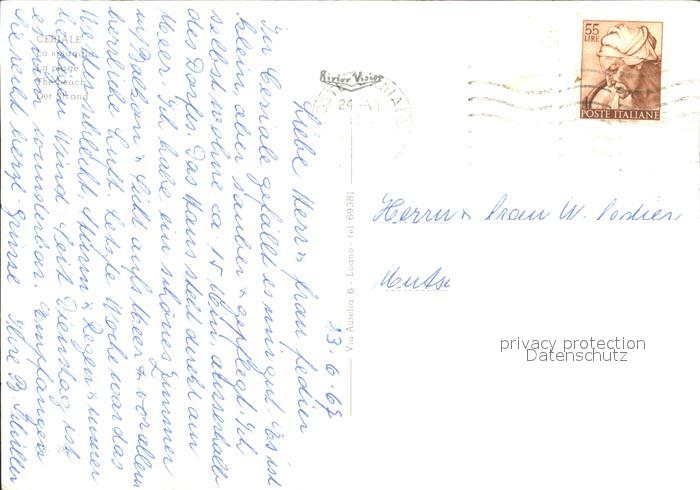 CERIALE
La spiaggia
La plage
The beach
Der Strand
Rivier Vision
24 -VI
55
LIRE
POSTE ITALIANE
Via Aurelia 6 - Loano - tel 69381
23.6.67
Liebe Herr & Frau Fedier
In Ceriale gefällt es mir gut. Es ist
klein, aber sauber & gepflegt. Ich
selbst wohne ca. 15 Min. ausserhalb
des Dorfes. Das Haus steht direkt am
Meer. Ich habe ein schönes Zimmer
m/Balkon & Sicht aufs Meer & vor allem
herrliche Luft. Letzte Woche war das
Wetter schlecht. Sturm & Regen & immer
Wind. Seit Dienstag ist
es nun wunderbar. Empfangen
Sie recht herzl. Grüsse Ihre B.
Herrn & Frau W. Fedier
privacy protection
Datenschutz